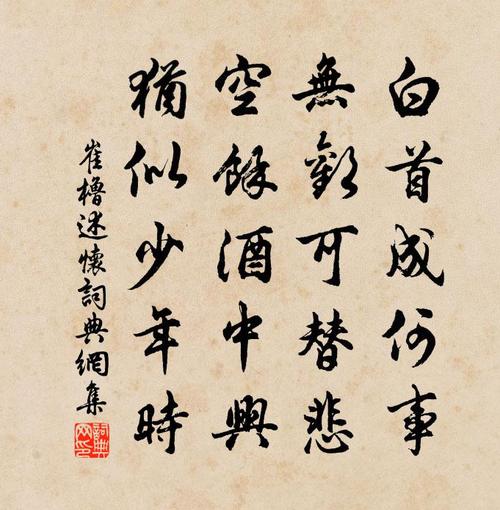 白首成何事
無歡可替悲
空餘酒中興
猶似少年時
崔櫓述懷詞典網集